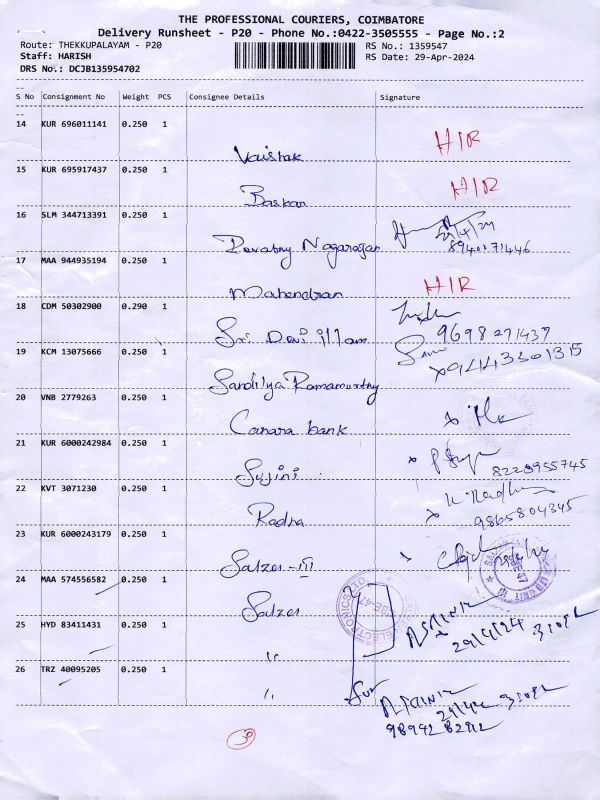 THE PROFESSIONAL COURIERS, COIMBATORE
Delivery Runsheet - P20 - Phone No.:0422-3505555 - Page No.:2
Route: THEKKUPALAYAM - P20
RS No.: 1359547
Staff: HARISH
RS Date: 29-Apr-2024
DRS No.: DCJB135954702
S No Consignment No Weight PCS Consignee Details Signature
14 KUR 696011141 0.250 1
Vaishak H/R
15 KUR 695917437 0.250 1
Baskar H/R
16 SLM 344713391 0.250 1
29/4/24
Nagarajan 8940171446
17 MAA 944935194 0.250 1
Mahendran H/R
18 CDM 50302900 0.290 1
Sri Devi illam 9698271437
19 KCM 13075666 0.250 1
94443301315
Sandilya Ramamurthy
20 VNB 2779263 0.250 1
Canara bank
21 KUR 6000242984 0.250 1
Sujini 8220955745
22 KVT 3071230 0.250 1
Radha
9865804345
23 KUR 6000243179 0.250 1
Salzer - III
24 MAA 574556582 0.250 1
Salzer
25 HYD 83411431 0.250 1
29/4/24
"
26 TRZ 40095205 0.250 1
"